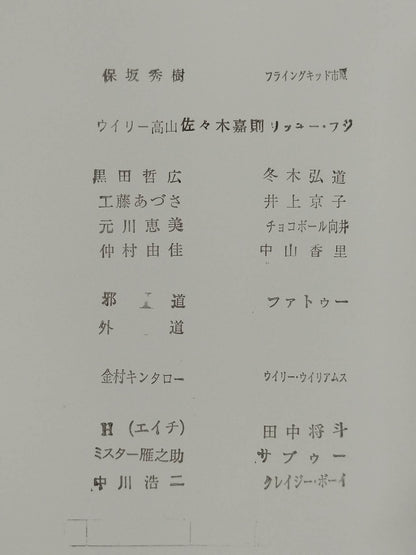 保坂秀樹 フライングキッド市原
ウイリー高山 佐々木嘉則 リッキー・フジ
黒田哲広 冬木弘道
工藤あづさ 井上京子
元川恵美 チョコボール向井
仲村由佳 中山香里
邪道 ファトゥー
外道
金村キンタロー ウイリー・ウイリアムス
H (エイチ) 田中将斗
ミスター雁之助 サブゥー
中川浩二 クレイジー・ボーイ